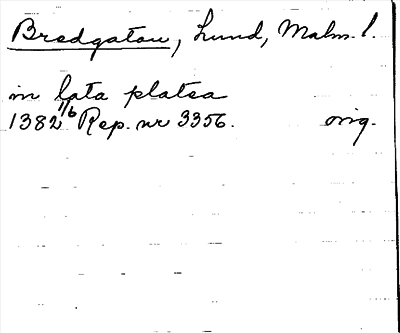 Bredgatan, Lund, Malm. l.
in lata platea
1382 11/6 Rep. nr 3356. orig.